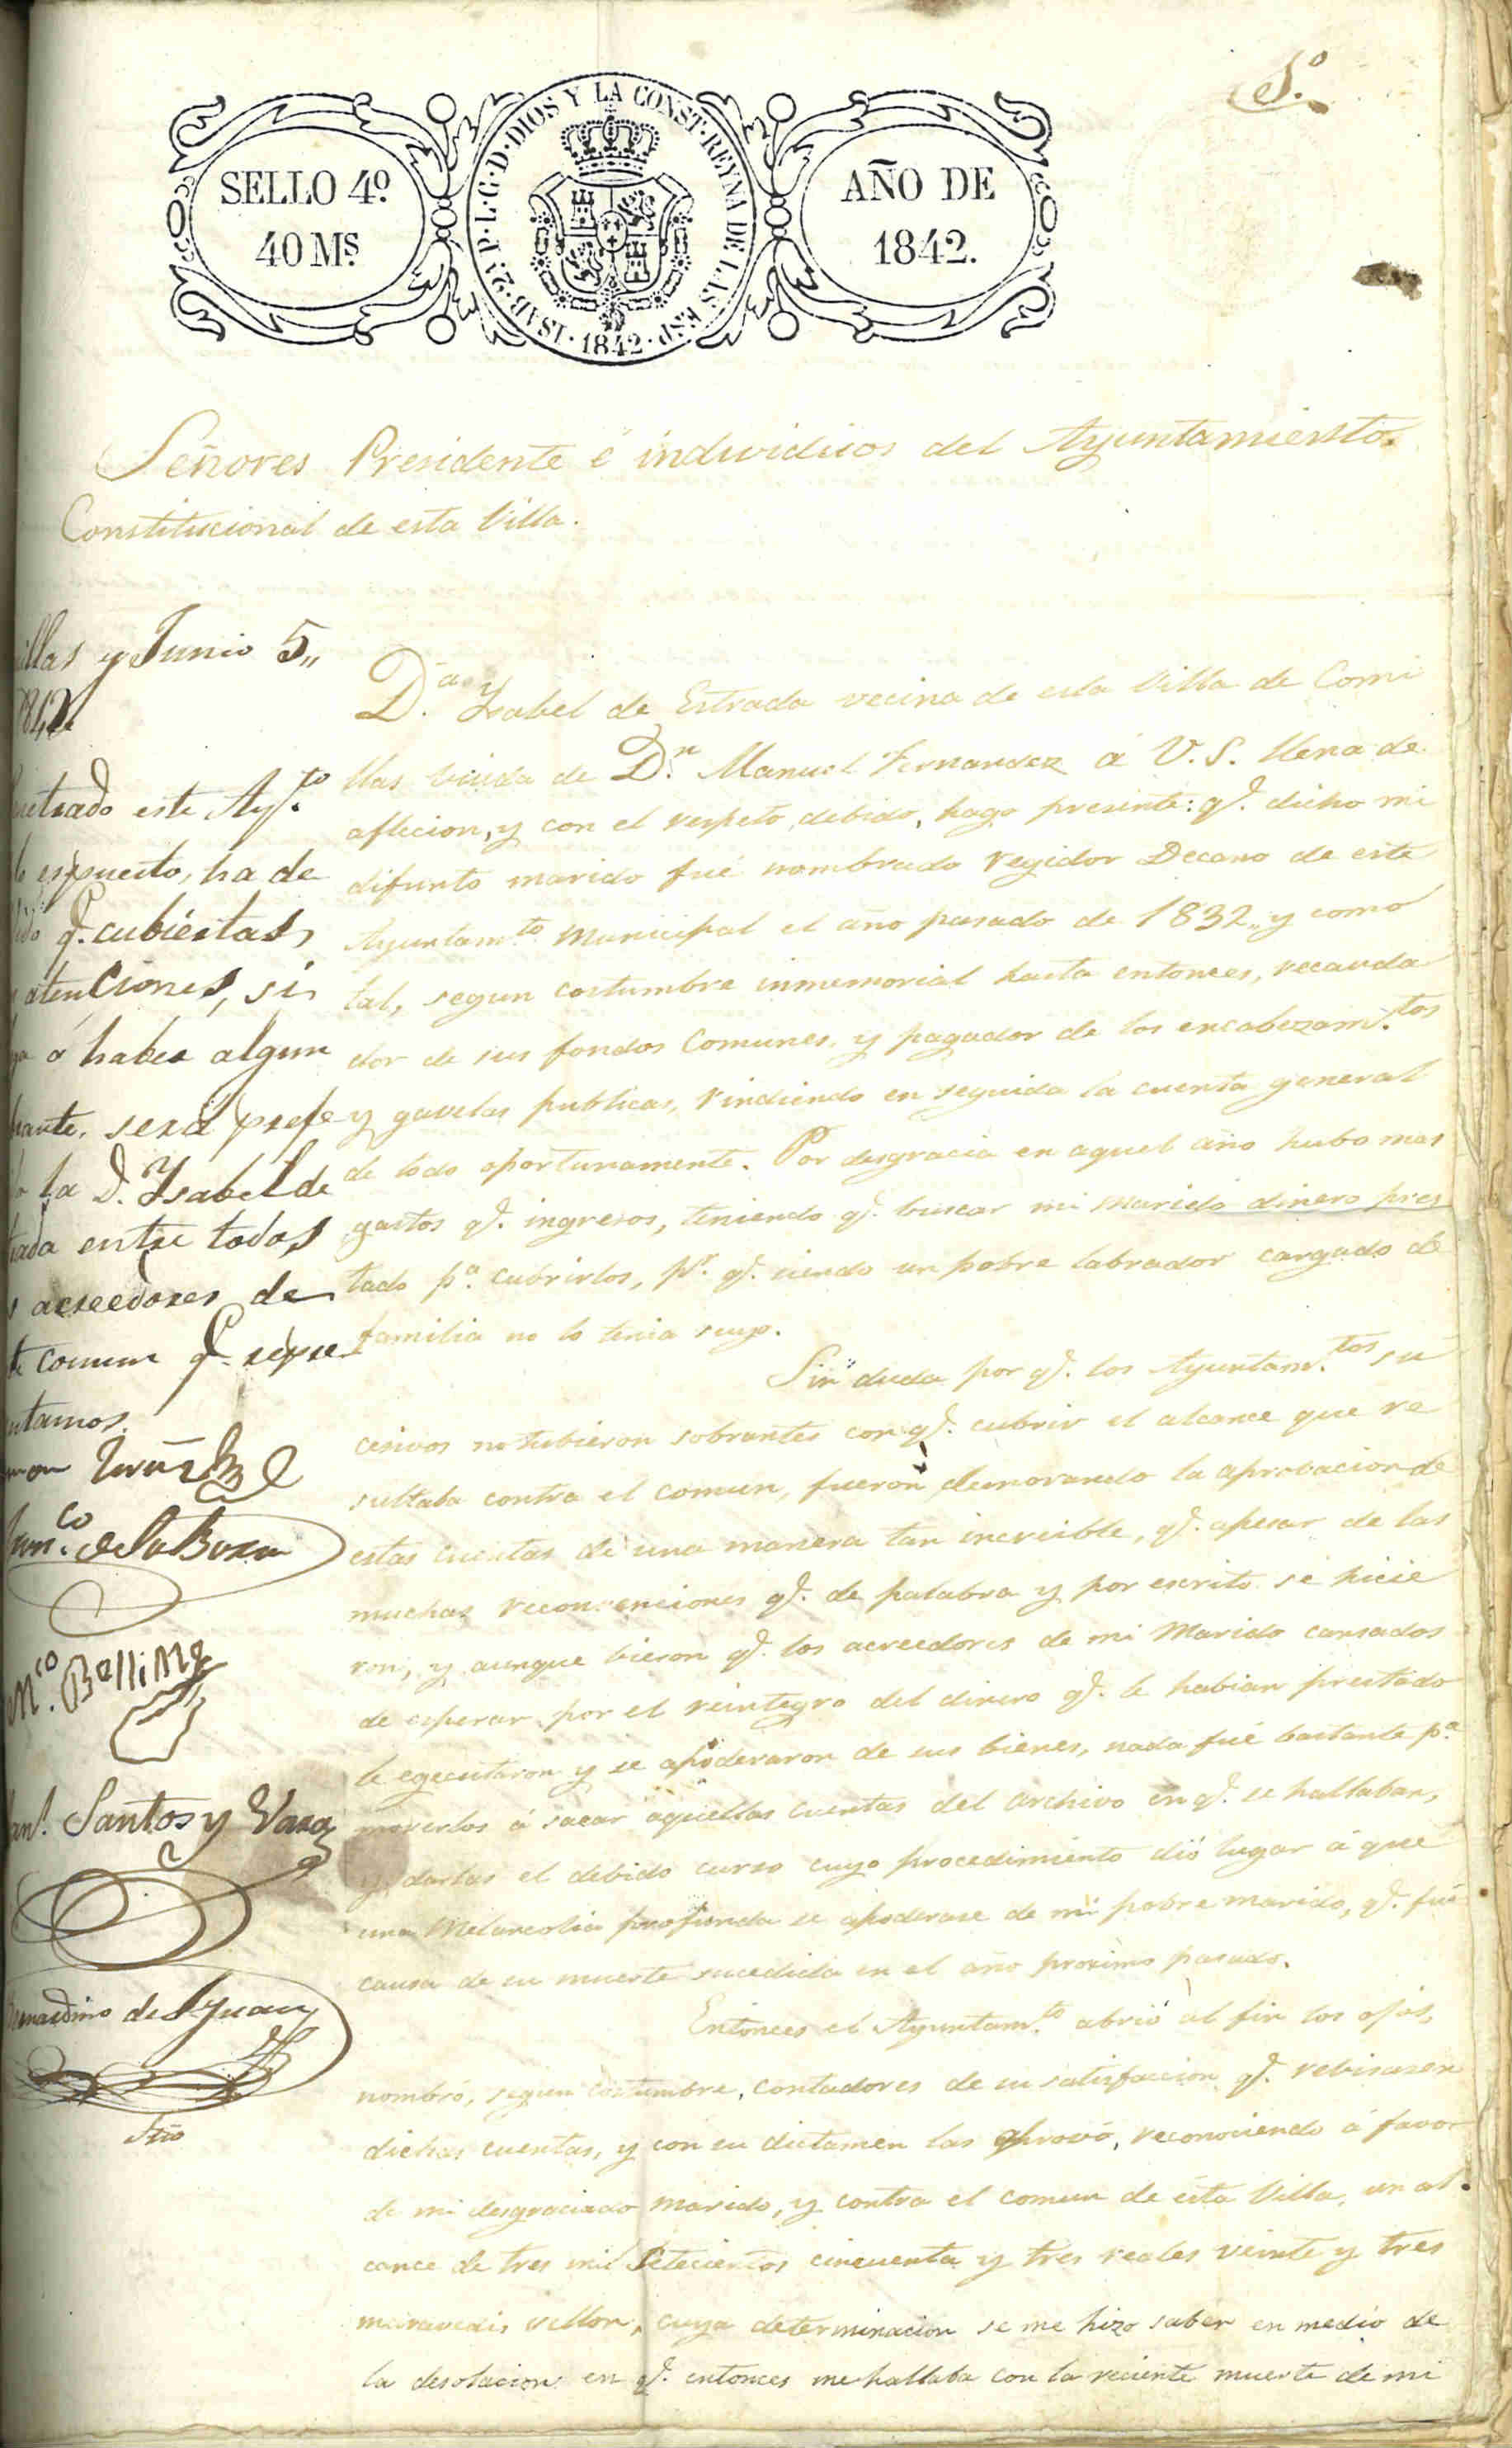 S.º
SELLO 4º.
40 Mˢ.
ISAB. 2ª. P. L. G. D. DIOS Y LA CONST. REYNA DE LAS ESP. 1842.
AÑO DE
1842.
Señores Presidente é individuos del Ayuntamiento
Constitucional de esta Villa.
illas y Junio 5,,
1842
este Ayt.to
espuesto, ha de
q.e cubiertas
atenciones, si
ó habia algun
brante, será prefe
la D. Ysabel de
trada entre todos
acreedores de
comun q.e repre
ntamos.
Fran.co de la Boza
Santos y Vara
Bernardino de S. Juan
Srio
D.ª Ysabel de Estrada vecina de esta Villa de Comi
llas viuda de D.n Manuel Fernandez á V.S. llena de
aflicion, y con el respeto debido, hago presente: q.e dicho mi
difunto marido fué nombrado regidor Decano de este
Ayuntam.to Municipal el año pasado de 1832,, y como
tal, segun costumbre inmemorial hasta entonces, recauda
dor de sus fondos Comunes, y pagador de los encabezam.tos
y gavelas publicas, rindiendo en seguida la cuenta general
de todo oportunamente. Por desgracia en aquel año hubo mas
gastos q.e ingresos, teniendo q.e buscar mi Marido dinero pres
tado p.a cubrirlos, p.r q.e siendo un pobre labrador cargado de
familia no lo tenia suyo.
Sin duda por q.e los Ayuntam.tos su
cesivos no tubieron sobrantes con q.e cubrir el alcance que re
sultaba contra el comun, fueron demorando la aprobacion de
estas cuentas de una manera tan increible, q.e apesar de las
muchas reconvenciones q.e de palabra y por escrito se hicie
ron, y aunque bieron q.e los acreedores de mi Marido cansados
de esperar por el reintegro del dinero q.e le habian prestado
le egecutaron y se apoderaron de sus bienes, nada fué bastante p.a
moverlos á sacar aquellas cuentas del archivo en q.e se hallaban,
y darlas el debido curso cuyo procedimiento dió lugar á que
una Melancolia profunda se apoderase de mi pobre marido, q.e fué
causa de su muerte sucedida en el año proximo pasado.
Entonces el Ayuntam.to abrió al fin los ojos,
nombró, segun costumbre, contadores de su satisfaccion q.e rebisasen
dichas cuentas, y con su dictamen las aprovó, reconociendo á favor
de mi desgraciado marido, y contra el comun de esta Villa, un al
cance de tres mil Setecientos cincuenta y tres reales veinte y tres
maravedis vellon, cuya determinacion se me hizo saber en medio de
la desolacion en q.e entonces me hallaba con la reciente muerte de mi